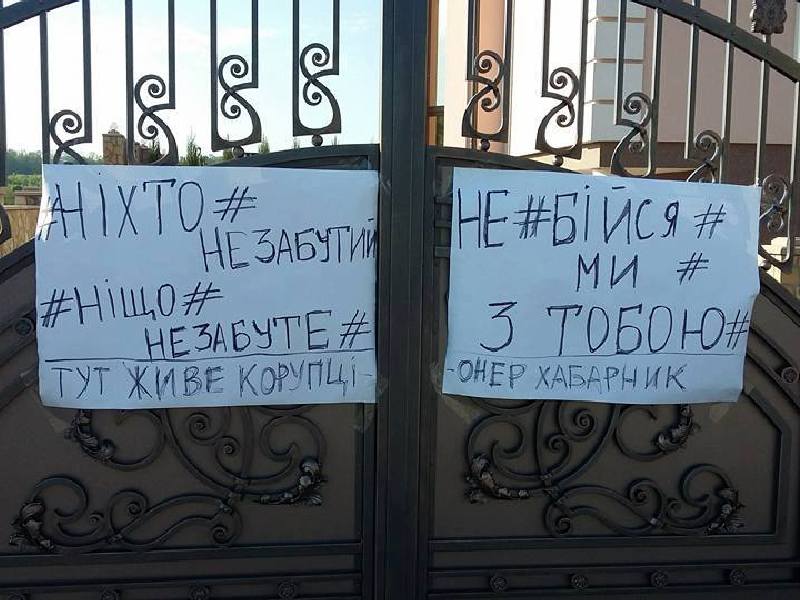 #НІХТО#
НЕЗАБУТИЙ
#НІЩО#
НЕЗАБУТЕ#
ТУТ ЖИВЕ КОРУПЦІ-
НЕ#БІЙСЯ#
МИ #
З ТОБОЮ#
-ОНЕР ХАБАРНИК